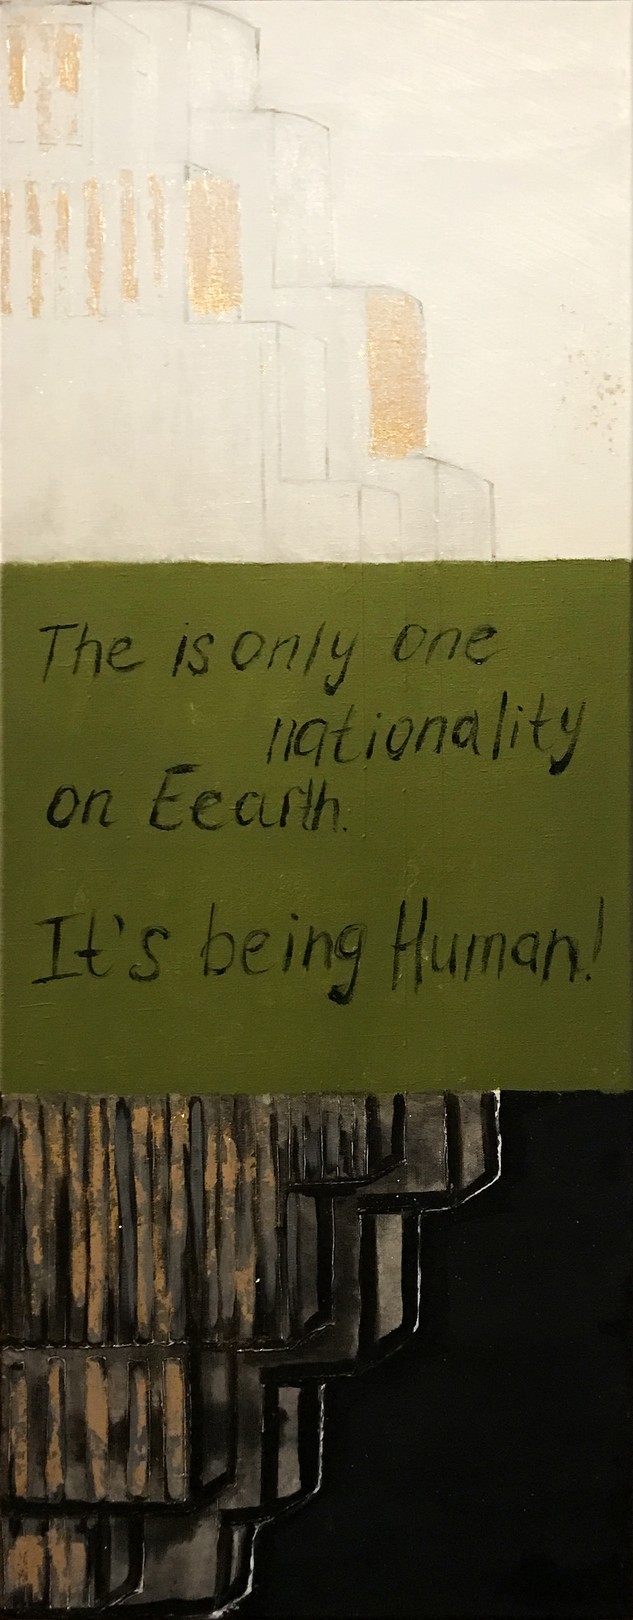 The is only one
nationality
on Eearth.
It's being Human!